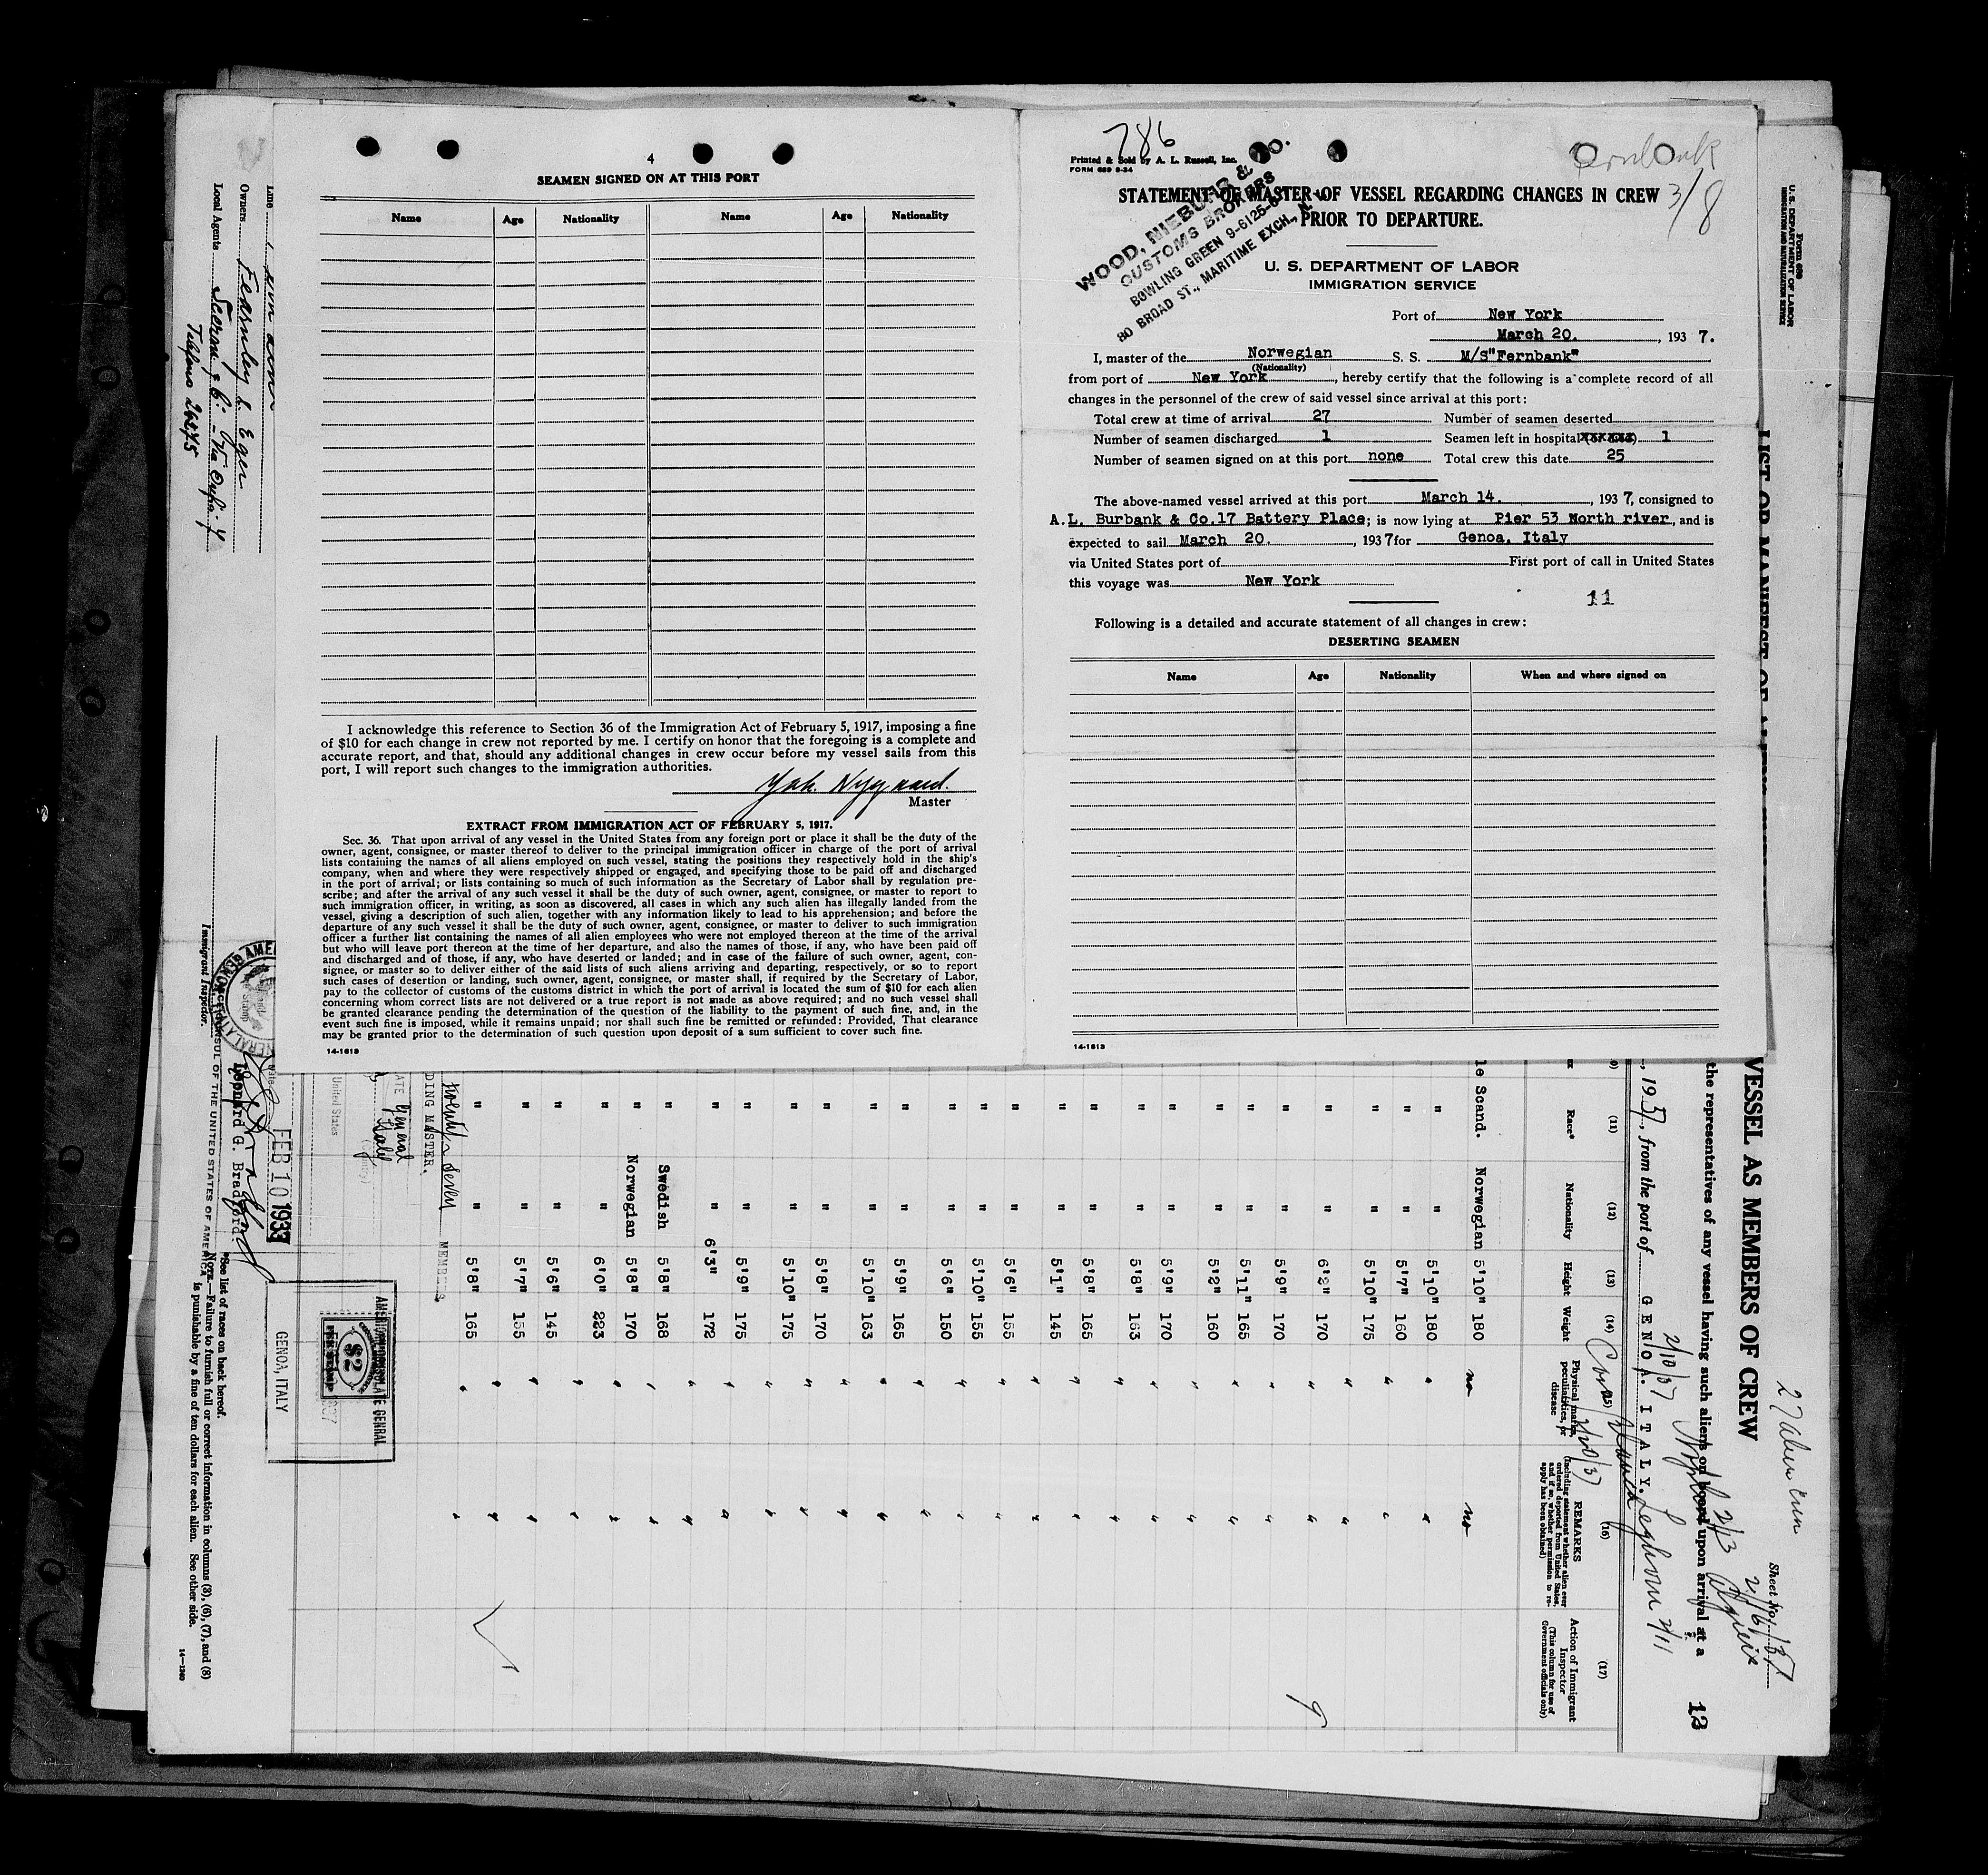 4
SEAMEN SIGNED ON AT THIS PORT
Name Age Nationality Name Age Nationality
I acknowledge this reference to Section 36 of the Immigration Act of February 5, 1917, imposing a fine
of $10 for each change in crew not reported by me. I certify on honor that the foregoing is a complete and
accurate report, and that, should any additional changes in crew occur before my vessel sails from this
port, I will report such changes to the immigration authorities.
Nygaard.
Master
EXTRACT FROM IMMIGRATION ACT OF FEBRUARY 5, 1917.
Sec. 36. That upon arrival of any vessel in the United States from any foreign port or place it shall be the duty of the
owner, agent, consignee, or master thereof to deliver to the principal immigration officer in charge of the port of arrival
lists containing the names of all aliens employed on such vessel, stating the positions they respectively hold in the ship's
company, when and where they were respectively shipped or engaged, and specifying those to be paid off and discharged
in the port of arrival; or lists containing so much of such information as the Secretary of Labor shall by regulation pre-
scribe; and after the arrival of any such vessel it shall be the duty of such owner, agent, consignee, or master to report to
such immigration officer, in writing, as soon as discovered, all cases in which any such alien has illegally landed from the
vessel, giving a description of such alien, together with any information likely to lead to his apprehension; and before the
departure of any such vessel it shall be the duty of such owner, agent, consignee, or master to deliver to such immigration
officer a further list containing the names of all alien employees who were not employed thereon at the time of the arrival
but who will leave port thereon at the time of her departure, and also the names of those, if any, who have been paid off
and discharged and of those, if any, who have deserted or landed; and in case of the failure of such owner, agent, con-
signee, or master so to deliver either of the said lists of such aliens arriving and departing, respectively, or so to report
such cases of desertion or landing, such owner, agent, consignee, or master shall, if required by the Secretary of Labor,
pay to the collector of customs of the customs district in which the port of arrival is located the sum of $10 for each alien
concerning whom correct lists are not delivered or a true report is not made as above required; and no such vessel shall
be granted clearance pending the determination of the question of the liability to the payment of such fine, and, in the
event such fine is imposed, while it remains unpaid; nor shall such fine be remitted or refunded: Provided, That clearance
may be granted prior to the determination of such question upon deposit of a sum sufficient to cover such fine.
14-1613
786
Printed & Sold by A. L. Russell, Inc.
FORM 689 9-34
3/8
STATEMENT OF MASTER OF VESSEL REGARDING CHANGES IN CREW
PRIOR TO DEPARTURE.
WOOD, NIEBUHR & CO.
CUSTOMS BROKERS
BOWLING GREEN 9-6125-
80 BROAD ST., MARITIME EXCH., N. Y.
U. S. DEPARTMENT OF LABOR
IMMIGRATION SERVICE
Port of New York
March 20. , 193 7.
I, master of the Norwegian S. S. M/S"Fernbank"
(Nationality)
from port of New York, hereby certify that the following is a complete record of all
changes in the personnel of the crew of said vessel since arrival at this port:
Total crew at time of arrival 27 Number of seamen deserted
Number of seamen discharged 1 Seamen left in hospital 1
Number of seamen signed on at this port none Total crew this date 25
The above-named vessel arrived at this port March 14. , 193 7, consigned to
A.L. Burbank & Co.17 Battery Place; is now lying at Pier 53 North river, and is
expected to sail March 20. , 193 7 for Genoa, Italy
via United States port of First port of call in United States
this voyage was New York
11
Following is a detailed and accurate statement of all changes in crew:
DESERTING SEAMEN
Name Age Nationality When and where signed on
14-1613
Form 689
U. S. DEPARTMENT OF LABOR
IMMIGRATION AND NATURALIZATION SERVICE
Sheet No.
VESSEL AS MEMBERS OF CREW
the representatives of any vessel having such aliens on board upon arrival at a
13
, 1937, from the port of GENOA. ITALY. Leghorn 2/11
2/10/37
(11) (12) (13) (14) (15) (16) (17)
Race* Nationality Height Weight Physical marks, peculiarities, or disease REMARKS Action of Immigrant Inspector
(Including statement whether alien ever ordered deported from United States, and if so, whether permission to re-apply has been obtained)
(This column for use of Government officials only)
le Scand. Norwegian 5'10" 180 no no
" " 5'10" 180
" " 5'7" 160
" " 5'10" 175
" " 6'2" 170
" " 5'9" 170
" " 5'11" 165
" " 5'2" 160
" " 5'9" 170
" " 5'8" 163
" " 5'8" 165
" " 5'1" 145
" " 5'6" 155
" " 5'10" 155
" " 5'6" 150
" " 5'9" 165
" " 5'10" 163
" " 5'8" 170
" " 5'10" 175
" " 5'9" 175
" " 6'3" 172
" Swedish 5'8" 168
" Norwegian 5'8" 170
" " 6'0" 223
" " 5'6" 145
" " 5'7" 155
" " 5'8" 165
DING MASTER.
United States
AMERICAN CONSULATE GENRAL
$2
GENOA, ITALY
FEB 10 1937
Leonard G. Bradford.
CONSUL OF THE UNITED STATES OF AMERICA
Immigrant Inspector.
*See list of races on back hereof.
NOTE.—Failure to furnish full or correct information in columns (3), (6), (7), and (8)
is punishable by a fine of ten dollars for each alien. See other side.
14—1240
Line
Owners Fearnley & Eger
Local Agents